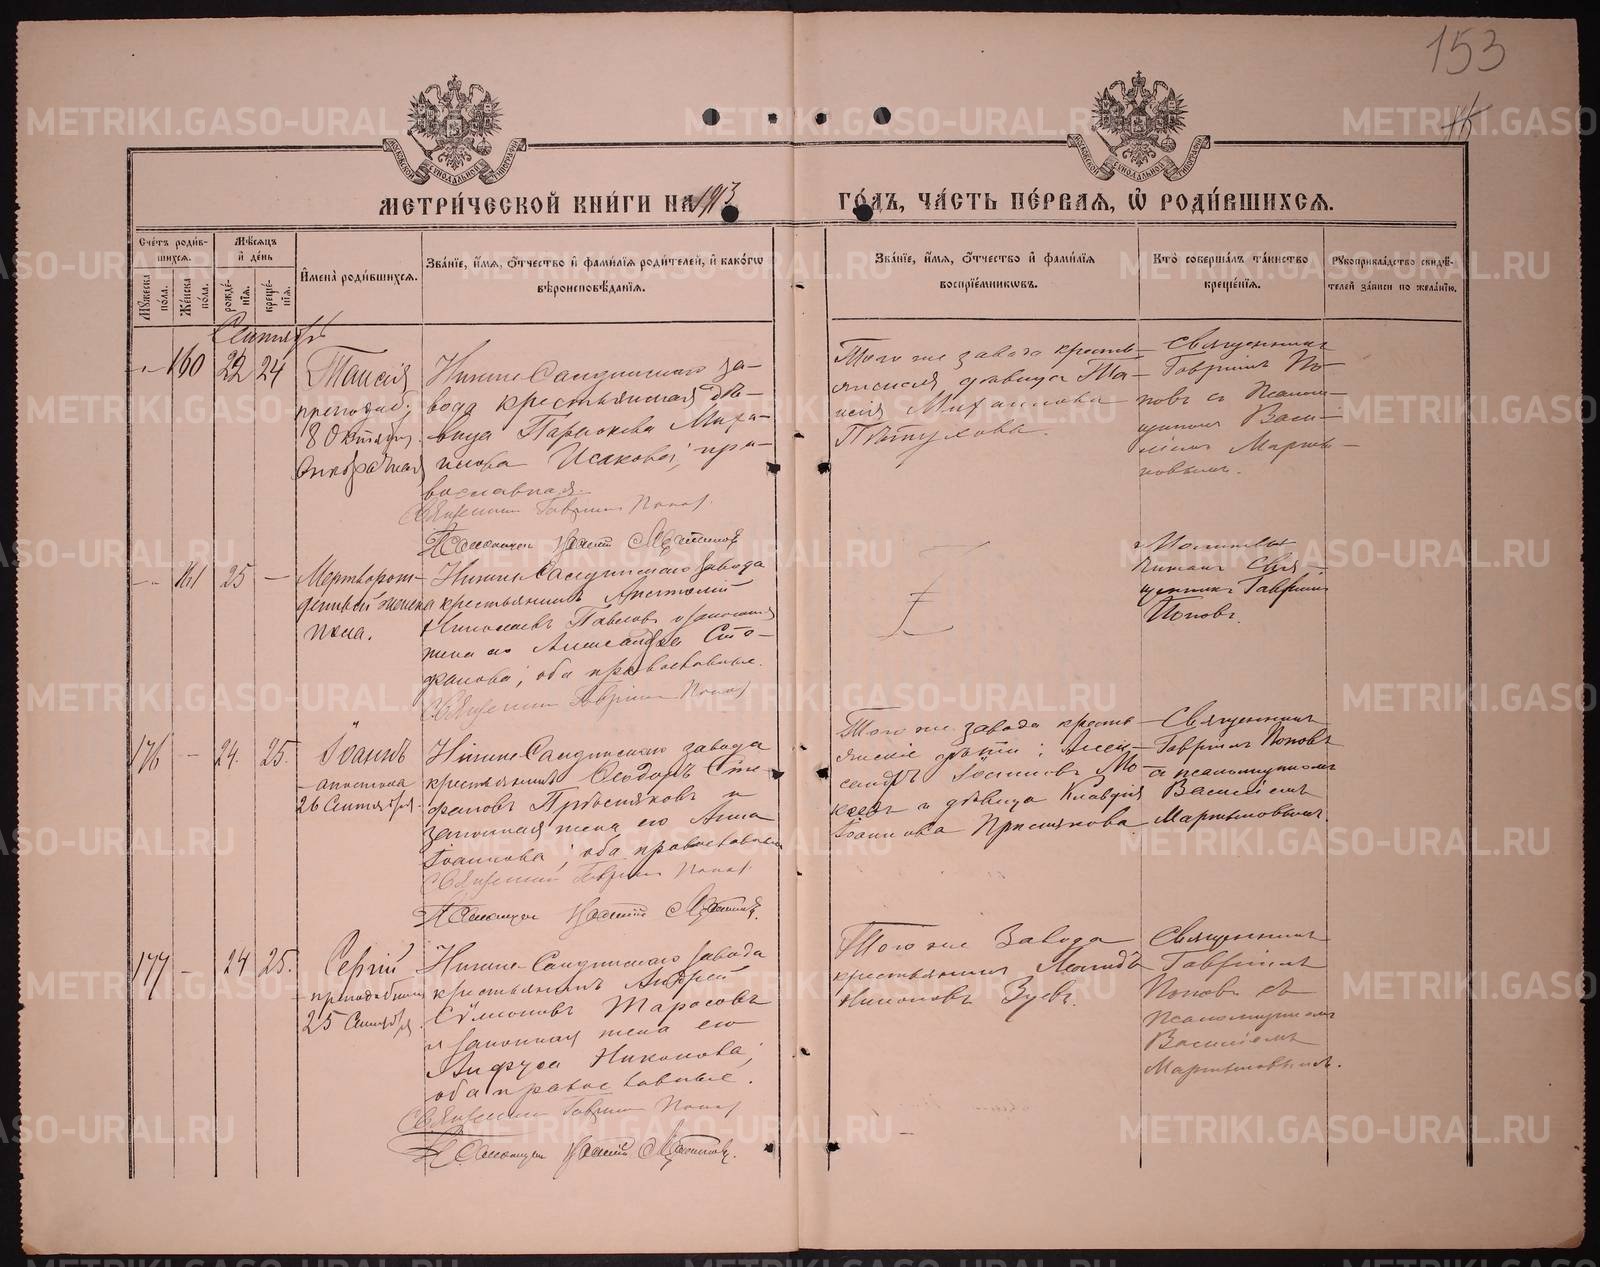 153
МЕТРИ́ЧЕСКОЙ КНИ́ГИ НА 1913 ГО́ДЪ, ЧА́СТЬ ПЕ́РВАЯ, Ѽ РОДИ́ВШИХСЯ.
Сче́тъ роди́вшихся.
Мꙋжеска по́ла.
Же́нска по́ла.
Мѣ́сяцъ и҆ де́нь
рожде́нїя.
креще́нїя.
И҆мена̀ роди́вшихся.
Зва́нїе, и҆́мя, ѻ҆́тчество и҆ фами́лїя роди́телей, и҆ како́гѡ
вѣроисповѣ́данїя.
Зва́нїе, и҆́мя, ѻ҆́тчество и҆ фами́лїя
воспрїе́мникѡвъ.
Кто̀ соверша́лъ та́инство
креще́нїя.
Рꙋкоприкла́дство свидѣ́-
телей за́писи по жела́нїю.
Сентябрь
160 22 24
Таисія
преподоб.
8 Октября
Нижне Салдинскаго за-
вода крестьянская дѣ-
вица Параскева Миро-
нова Исакова; пра-
вославная.
Священник Гавриил Попов
Псаломщик Мартынов
Того же завода кресть-
янская дѣвица Та-
исія Михаилова
Пѣтухова.
Священник
Гавріил По-
повъ с Псалом-
щиком Васи-
ліем Марты-
новым.
161 25 —
Мертворож-
денный женска
пола.
Нижне Салдинскаго завода
крестьянинъ Анатолій
Николаевъ Павлов и законная
жена его Александра Сте-
фанова; оба православные.
Священник Гавриил Попов
Священник Гавріил
Поповъ.
176 — 24. 25.
Іоаннъ
апостола
26 Сентября
Нижне Салдинскаго завода
крестьянинъ Ѳеодоръ Сте-
фановъ и
законная жена его Анна
Іоаннова; оба православные
Священник Гавриил Попов
Псаломщик Мартынов
Того же завода кресть-
янскіе дѣти: Алек-
сандръ Іоанновъ
и дѣвица Клавдія
Іоаннова
Священник
Гавріил Поповъ
с псаломщиком
Василіемъ
Мартыновым.
177 — 24 25.
Сергій
преподобнаго
25 Сентября
Нижне-Салдинскаго завода
крестьянинъ Андрей
Сѵмеоновъ Тарасовъ
и законная жена его
Анфуса Никонова;
оба православные.
Священник Гавриил Попов
Псаломщик Мартынов
Того же Завода
крестьянинъ Леонидъ
Никоновъ Зуевъ.
Священник
Гавріилъ
Поповъ съ
Псаломщиком
Василіемъ
Мартыновымъ.
METRIKI.GASO-URAL.RU